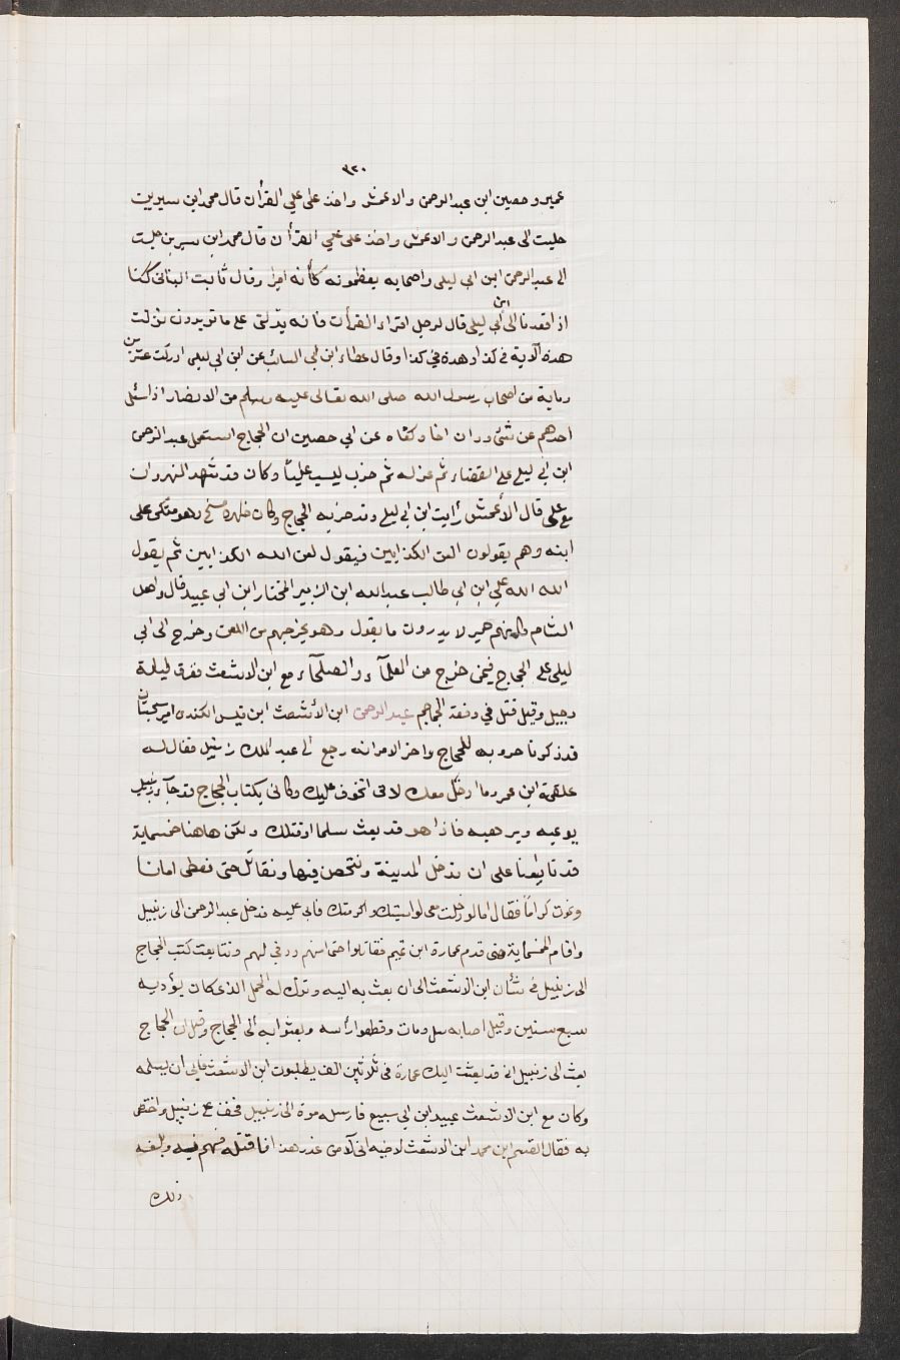 ٣٢٠
عمير وحصين ابن عبد الرحمن والاعمش واخذ على علي القرأن قال محمد ابن سيرين
جلست الى عبد الرحمن والاعمش واخذ على علي القرأن قال محمد ابن سيرين جلست
الى عبد الرحمن ابن ابي ليلى واصحابه يعظمونه كأنه امير وقال ثابت البناني كنا
اذا قعدنا الى ابن ابي ليلى قال لرجل اقراء القرأن فانه يدلني على ما تريدون نزلت
هذه الآية في كذا وهذه في كذا وقال عطاء ابن ابي السائب عن ابن ابي ليلى ادركت عشرين
وماية من اصحاب رسول الله صلى الله تعالى عليه وسلم من الانصار اذا سئل
احدهم عن شئ ود ان اخاه كفاه عن ابي حصين ان الحجاج استعمل عبد الرحمن
ابن ابي ليلى على القضاء ثم عزله ثم ضرب ليسب علياً وكان قد شهد النهروان
مع علي قال الأعمش رأيت ابن ابي ليلى وقد ضربه الحجاج وكان ظهره مسح وهو متكى على
ابنه وهم يقولون العن الكذابين فيقول لعن الله الكذابين ثم يقول
الله الله علي ابن ابي طالب عبد الله ابن الزبير المختار ابن ابي عبيد قال واهل
الشام كانهم حمير لا يدرون ما يقول وهو يخرجهم من اللعن وخرج الى ابي
ليلى على الحجاج فيمن خرج من العلمآء والصلحآء مع ابن الاشعث فغرق ليلة
دجيل وقيل قتل في وقعة الجماجم عبد الرحمن ابن الأشعث ابن قيس الكنده امير سجستان
قد ذكرنا حروبه للحجاج واخر الامر انه رجع الى عبد الملك رتبيل فقال له
علقمة ابن عمرو ما ادخل معك لاني اتخوف عليك وكاني بكتاب الحجاج قد جآء رتبيل
يوعبه ويرهبه فاذا هو قد بعث سلما او قتلك ولكن هاهنا خمسماية
قد تابعنا على ان ندخل المدينة ونتحصن فيها ونقاتل حتى نعطى امانا
ونموت كراماً فقال اما لو دخلت معي لواسيتك واكرمتك فابى عليه فدخل عبد الرحمن الى رتبيل
واقام الخمسماية حتى قدم عمارة ابن تميم فقاتلوا حتى امنهم ووفى لهم وتتابعت كتب الحجاج
الى رتبيل في شأن ابن الاشعث الى ان بعث به اليه وترك له الحمل الذي كان يؤديه
سبع سنين وقيل اصابه سل ومات وقطعوا رأسه وبعثوا به الى الحجاج وقيل ان الحجاج
بعث الى رتبيل اني قد بعثت اليك عمارة في ثلاثين الف يطلبون ابن الاشعث فابى ان يسلمه
وكان مع ابن الاشعث عبيد ابن ابي سبيع فارسله مرة الى رتبيل فخف على رتبيل واختص
به فقال القسم ابن محمد ابن الاشعث لاخيه اني لآمن غدر هذا فاقتله فهم فيه وبلغه
ذلك